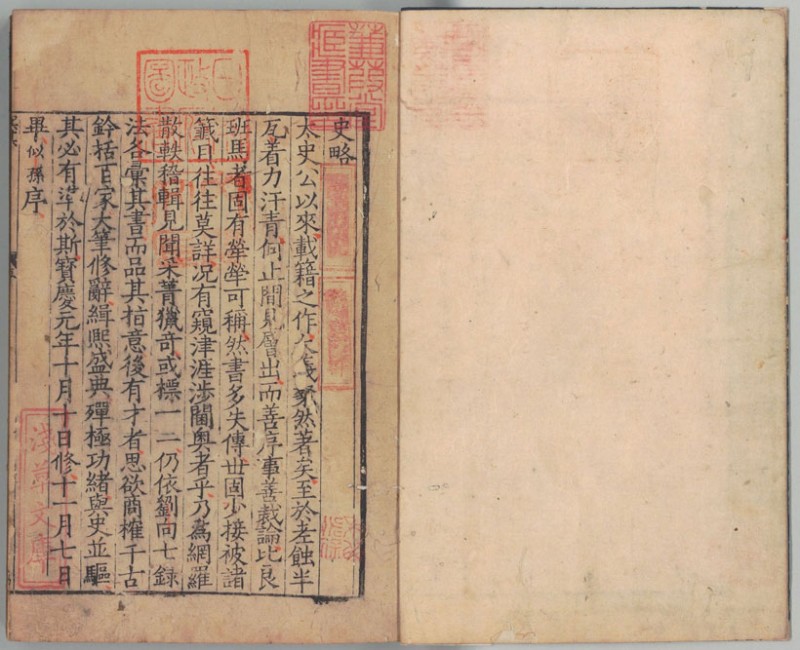 史略
太史公以來載籍之作大義粲然著矣至於老蝕半
瓦着力汗青何止閒見層出而善序事善裁論比良
班馬者固有犖犖可稱然書多失傳世固少接被諸
籤目往往莫詳况有窺津涯涉閫奥者乎乃爲網羅
散軼稽輯見聞采菁獵奇或標一二仍依劉向七録
法各彙其書而品其指意後有才者思欲商榷千古
鈐括百家大筆修辭緝熙盛典殫極功緒與史並驅
其必有凖於斯寶慶元年十月十日修十一月七日
畢似孫序
淺草文庫